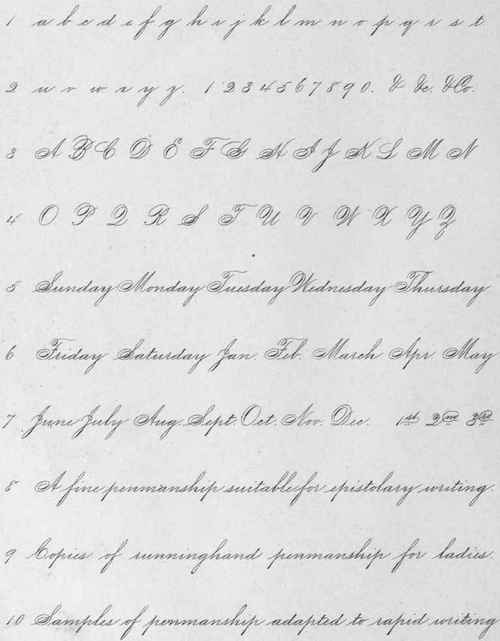 1 a b c d e f g h i j k l m n o p q r s t
2 u v w x y z. 1 2 3 4 5 6 7 8 9 0. & &c. &Co.
3 A B C D E F G H I J K L M N
4 O P Q R S T U V W X Y Z
5 Sunday Monday Tuesday Wednesday Thursday
6 Friday Saturday Jan. Feb. March Apr May
7 June July Aug. Sept. Oct. Nov. Dec. 1st 2nd 3rd
8 A fine penmanship suitable for epistolary writing.
9 Copies of runninghand penmanship for ladies.
10 Samples of penmanship adapted to rapid writing